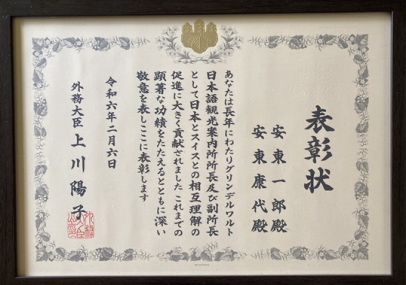 表彰状
安東一郎殿
安東康代殿
あなたは長年にわたりグリンデルワルト
日本語観光案内所所長及び副所長
として日本とスイスとの相互理解の
促進に大きく貢献されました これまでの
顕著な功績をたたえるとともに深い
敬意を表しここに表彰します
令和六年二月六日
外務大臣 上川陽子